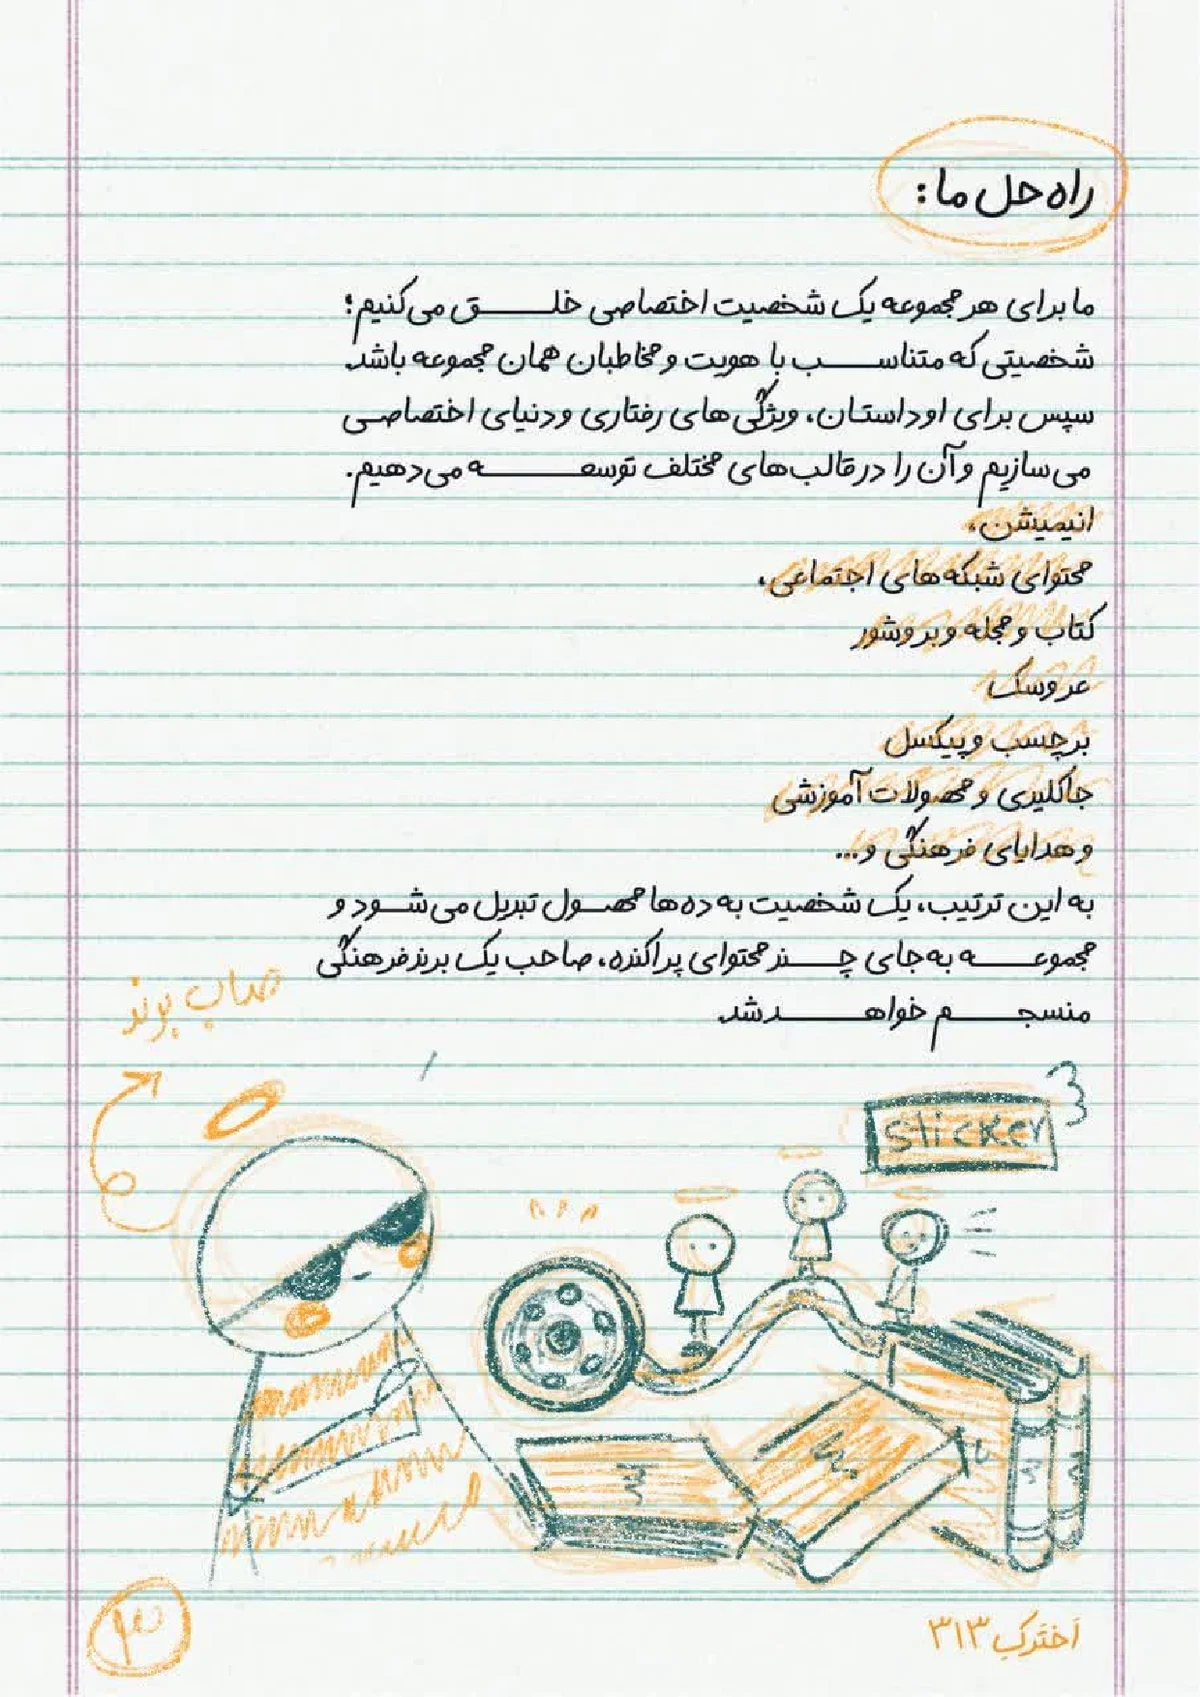 راه حل ما:
ما برای هر مجموعه یک شخصیت اختصاصی خلق می‌کنیم؛
شخصیتی که متناسب با هویت و مخاطبان همان مجموعه باشد.
سپس برای او داستان، ویژگی‌های رفتاری و دنیای اختصاصی
می‌سازیم و آن را در قالب‌های مختلف توسعه می‌دهیم.
انیمیشن،
محتوای شبکه‌های اجتماعی،
کتاب و مجله و بروشور
عروسک
برچسب و پیکسل
جاکلیدی و محصولات آموزشی
و هدایای فرهنگی و...
به این ترتیب، یک شخصیت به ده‌ها محصول تبدیل می‌شود و
مجموعه به جای چند محتوای پراکنده، صاحب یک برند فرهنگی
منسجم خواهد شد.
برند
sticker
۳
اَختَرک ۳۱۳